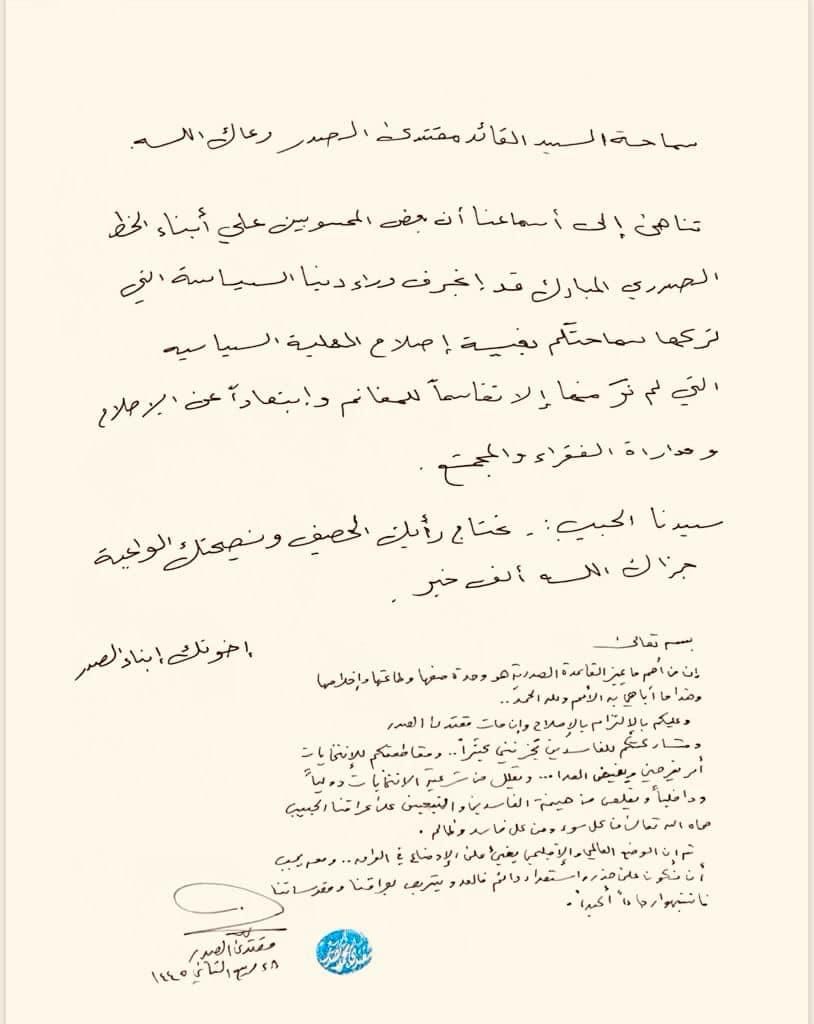 سماحة السيد القائد مقتدى الصدر رعاك الله.
تناهى إلى أسماعنا أن بعض المحسوبين علي أبناء الخط
الصدري المبارك قد إنجرف وراء دنيا السياسة التي
تركها سماحتكم بغية إصلاح العملية السياسيه
التي لم نرَ منها إلا تقاسماً للمغانم وإبتعاداً عن الإصلاح
ومداراة الفقراء والمجتمع .
سيدنا الحبيب :. نحتاج رأيك الحصيف ونصيحتك الواعية
جزاك الله ألف خير .
إخوتك إبناء الصدر
بسمه تعالى
إن من أهم ما يميز القاعدة الصدرية هو وحدة صفها وطاعتها وإخلاصها
وهذا ما أباهي به الأمم ولله الحمد ..
وعليكم بالإلتزام بالإصلاح وإن مات مقتدى الصدر
ومشاركتكم للفاسدين تحزنني كثيراً .. ومقاطعتكم للإنتخابات
أمر يفرحني ويغيض العدا ... ويقلل من شرعية الانتخابات دولياً
وداخلياً ويقلص من هيمنة الفاسدين والتبعيين على عراقنا الحبيب
حماه الله تعالى من كل سوء ومن كل فاسد وظالم .
ثم إن الوضع العالمي والإقليمي على الإوضاع في العراق .. ومعه يجب
أن تكون على حذر وإستعداد دائم فالعدو يتربص بعراقنا ومقدساتنا
فانتبهوا رجاءاً أكيداً .
مقتدى الصدر
٢٨ ربيع الثاني ١٤٤٥